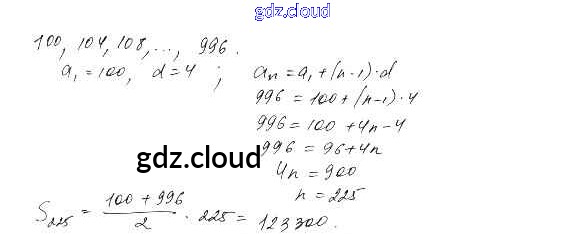 gdz.cloud
100, 104, 108, ..., 996.
a₁ = 100, d = 4 ; aₙ = a₁ + (n-1)·d
996 = 100 + (n-1)·4
996 = 100 + 4n - 4
996 = 96 + 4n
gdz.cloud
4n = 900
n = 225
S₂₂₅ = (100 + 996)/2 · 225 = 123300.